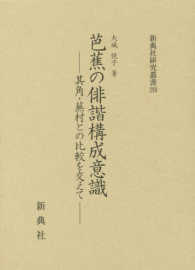 新典社研究叢書
大城 悦子 著
芭蕉の俳諧構成意識
――其角・蕪村との比較を交えて――
新典社